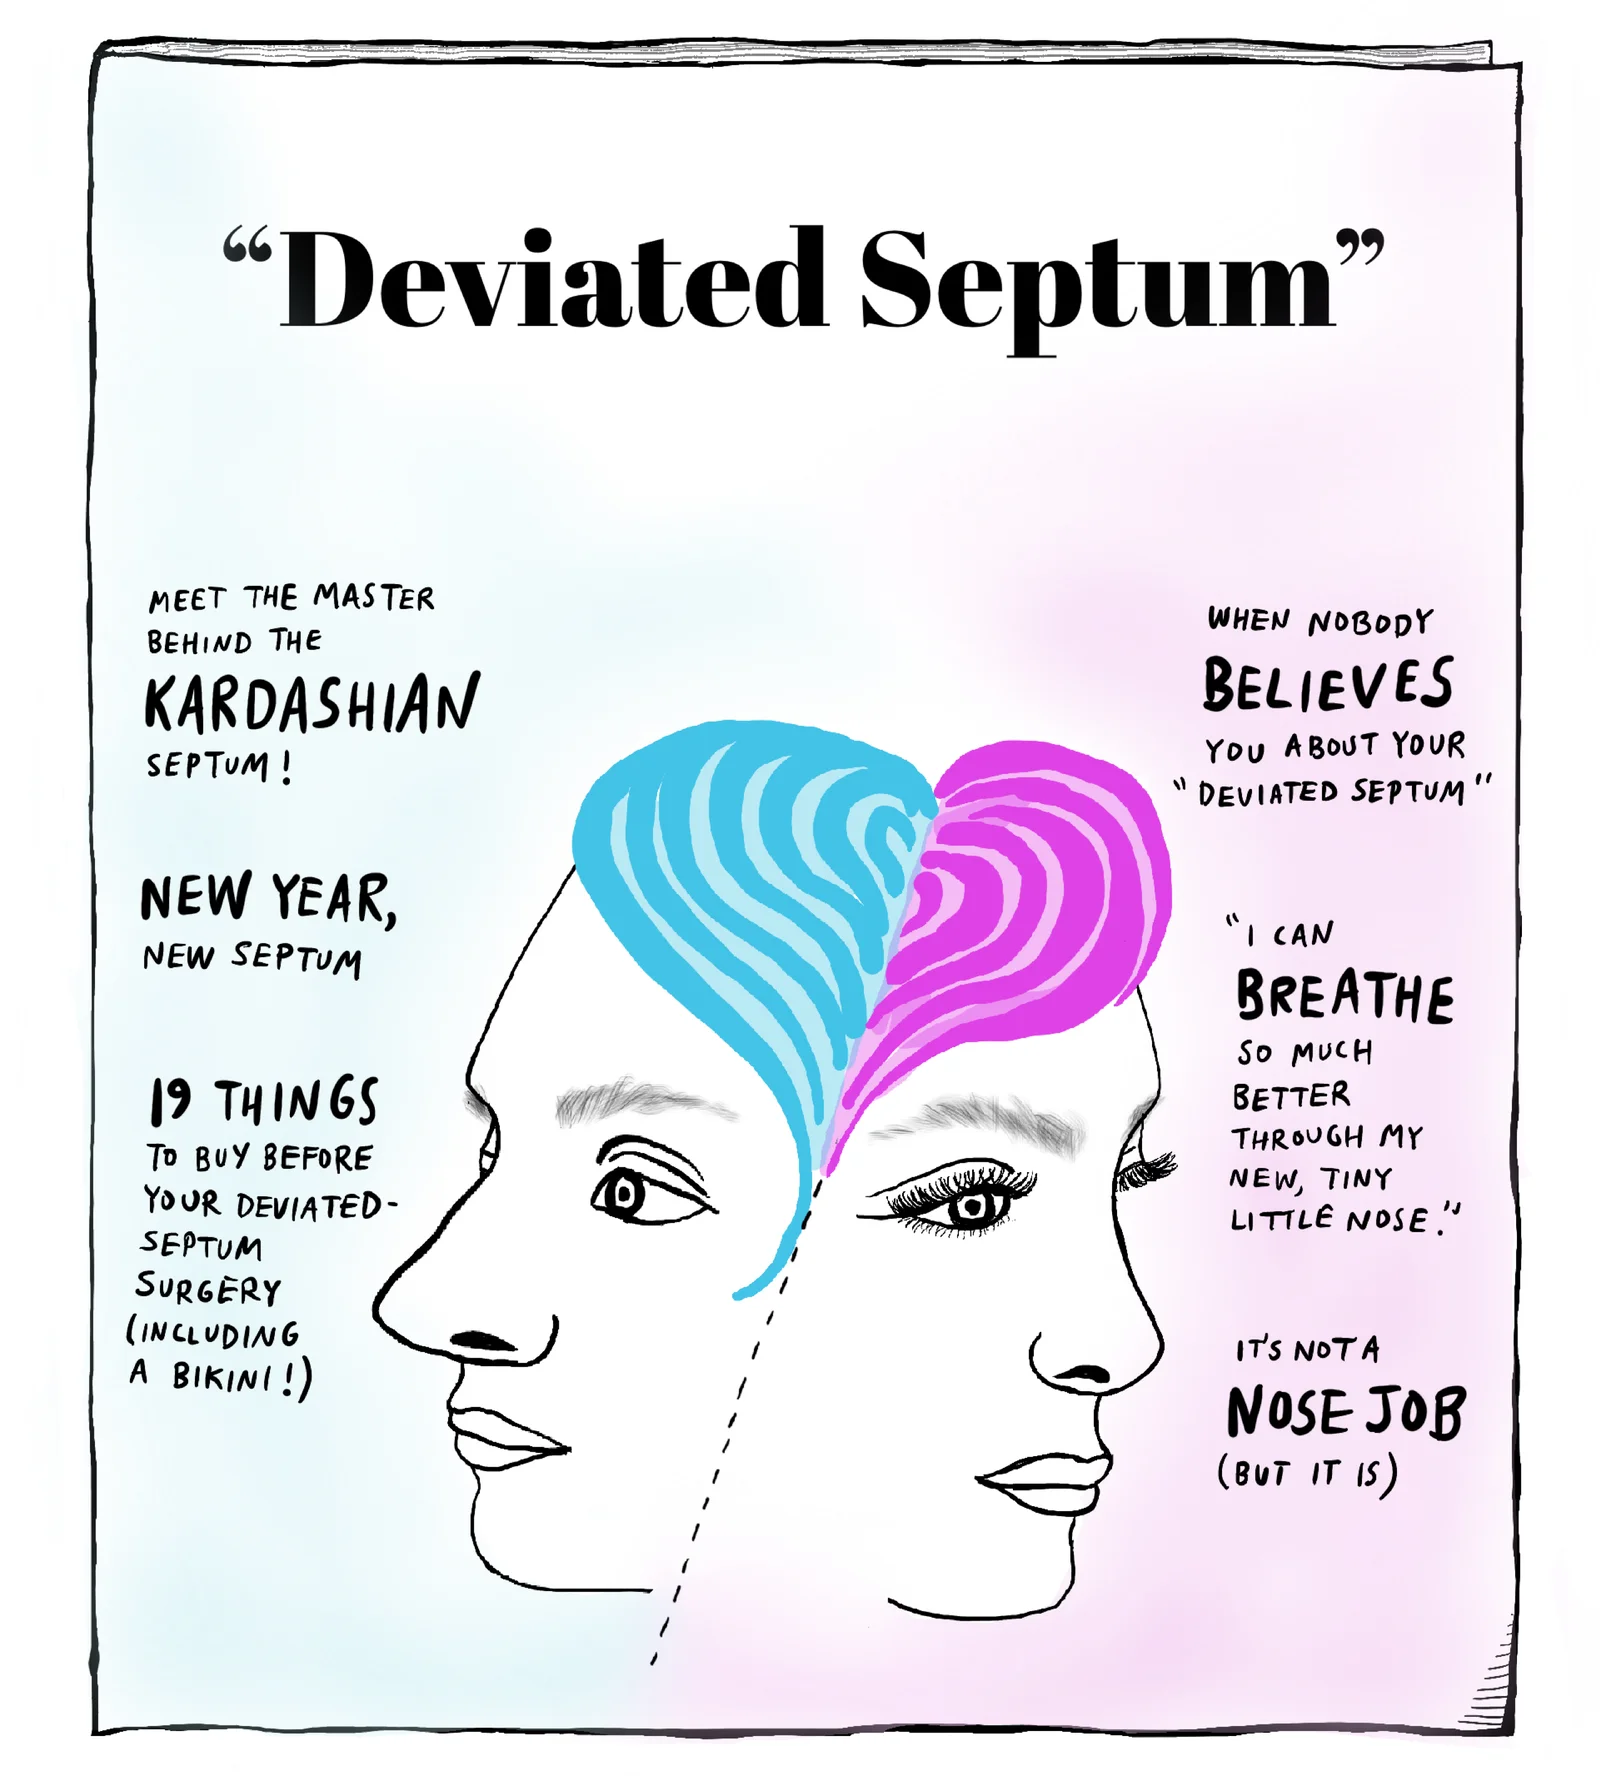 “Deviated Septum”
MEET THE MASTER
BEHIND THE
KARDASHIAN
SEPTUM!
NEW YEAR,
NEW SEPTUM
19 THINGS
TO BUY BEFORE
YOUR DEVIATED-
SEPTUM
SURGERY
(INCLUDING
A BIKINI!)
WHEN NOBODY
BELIEVES
YOU ABOUT YOUR
"DEVIATED SEPTUM"
"I CAN
BREATHE
SO MUCH
BETTER
THROUGH MY
NEW, TINY
LITTLE NOSE."
IT'S NOT A
NOSE JOB
(BUT IT IS)